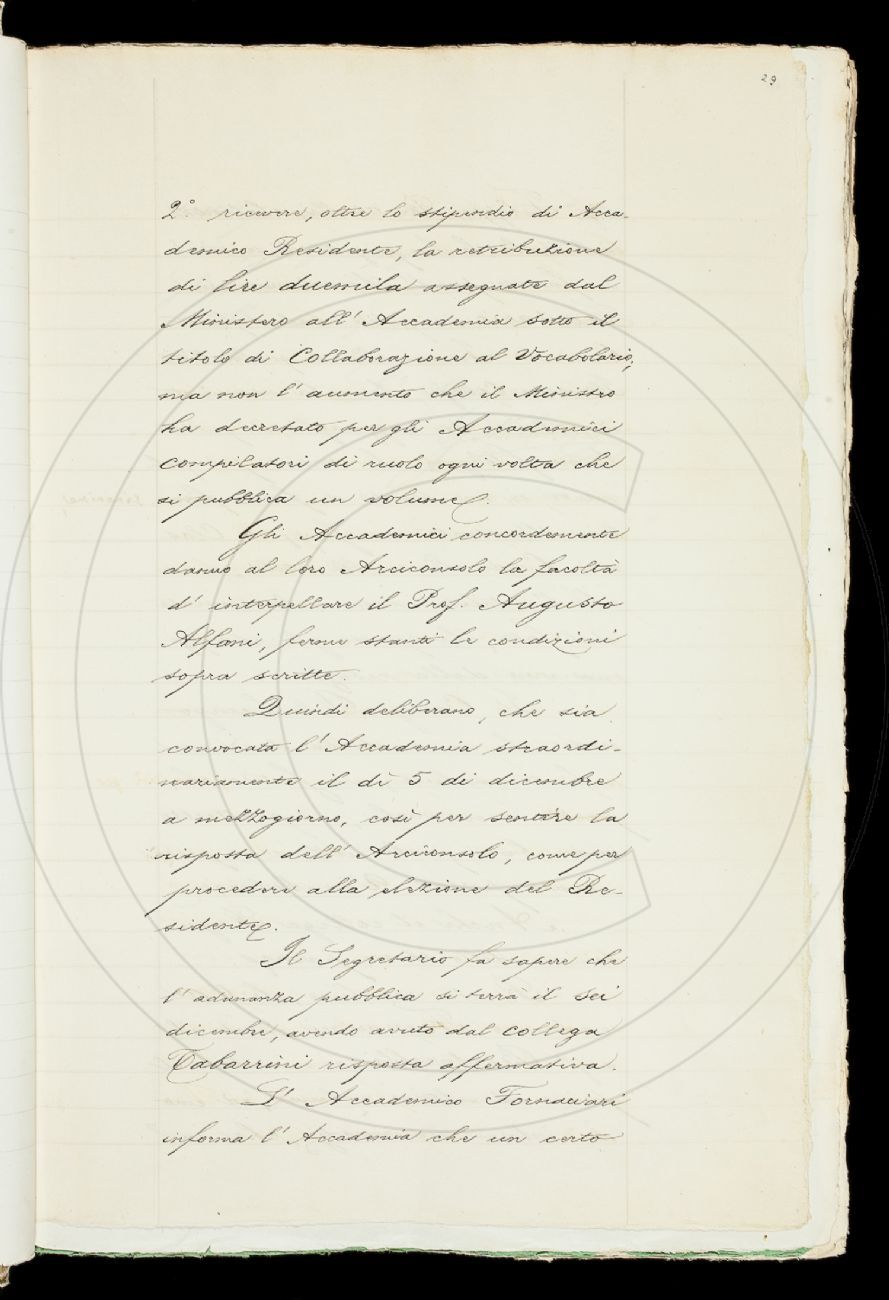 29
2° ricevere, oltre lo stipendio di Acca-
demico Residente, la retribuzione
di lire duemila assegnate dal
Ministero all' Accademia sotto il
titolo di Collaborazione al Vocabolario;
ma non l' aumento che il Ministro
ha decretato per gli Accademici
compilatori di ruolo ogni volta che
si pubblica un volume.
Gli Accademici concordemente
danno al loro Arciconsolo la facoltà
d' interpellare il Prof. Augusto
Alfani, ferme stanti le condizioni
sopra scritte.
Quindi deliberano, che sia
convocata l' Accademia straordi-
nariamente il dì 5 di dicembre
a mezzogiorno, così per sentire la
risposta dell' Arciconsolo, come per
procedere alla elezione del Re-
sidente.
Il Segretario fa sapere che
l' adunanza pubblica si terrà il sei
dicembre, avendo avuto dal collega
Tabarrini risposta affermativa.
L' Accademico Fornaciari
informa l' Accademia che un certo